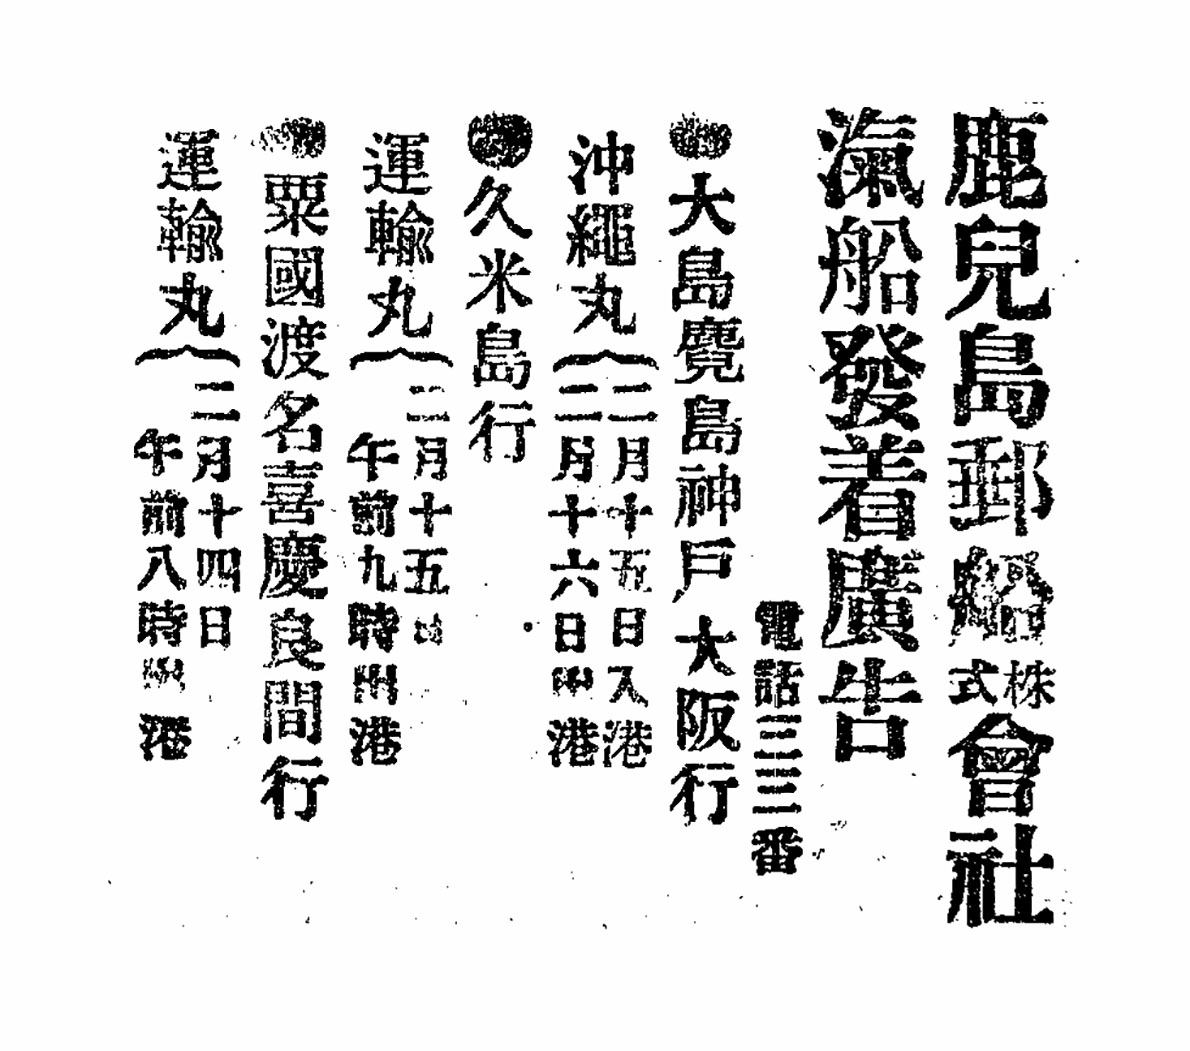 鹿兒島郵船株式會社
滊船發着廣告
電話三三番
●大島麑島神戶大阪行
沖繩丸{二月十五日入港
二月十六日出港
●久米島行
運輸丸{二月十五日
午前九時出港
●粟國渡名喜慶良間行
運輸丸{二月十四日
午前八時出港